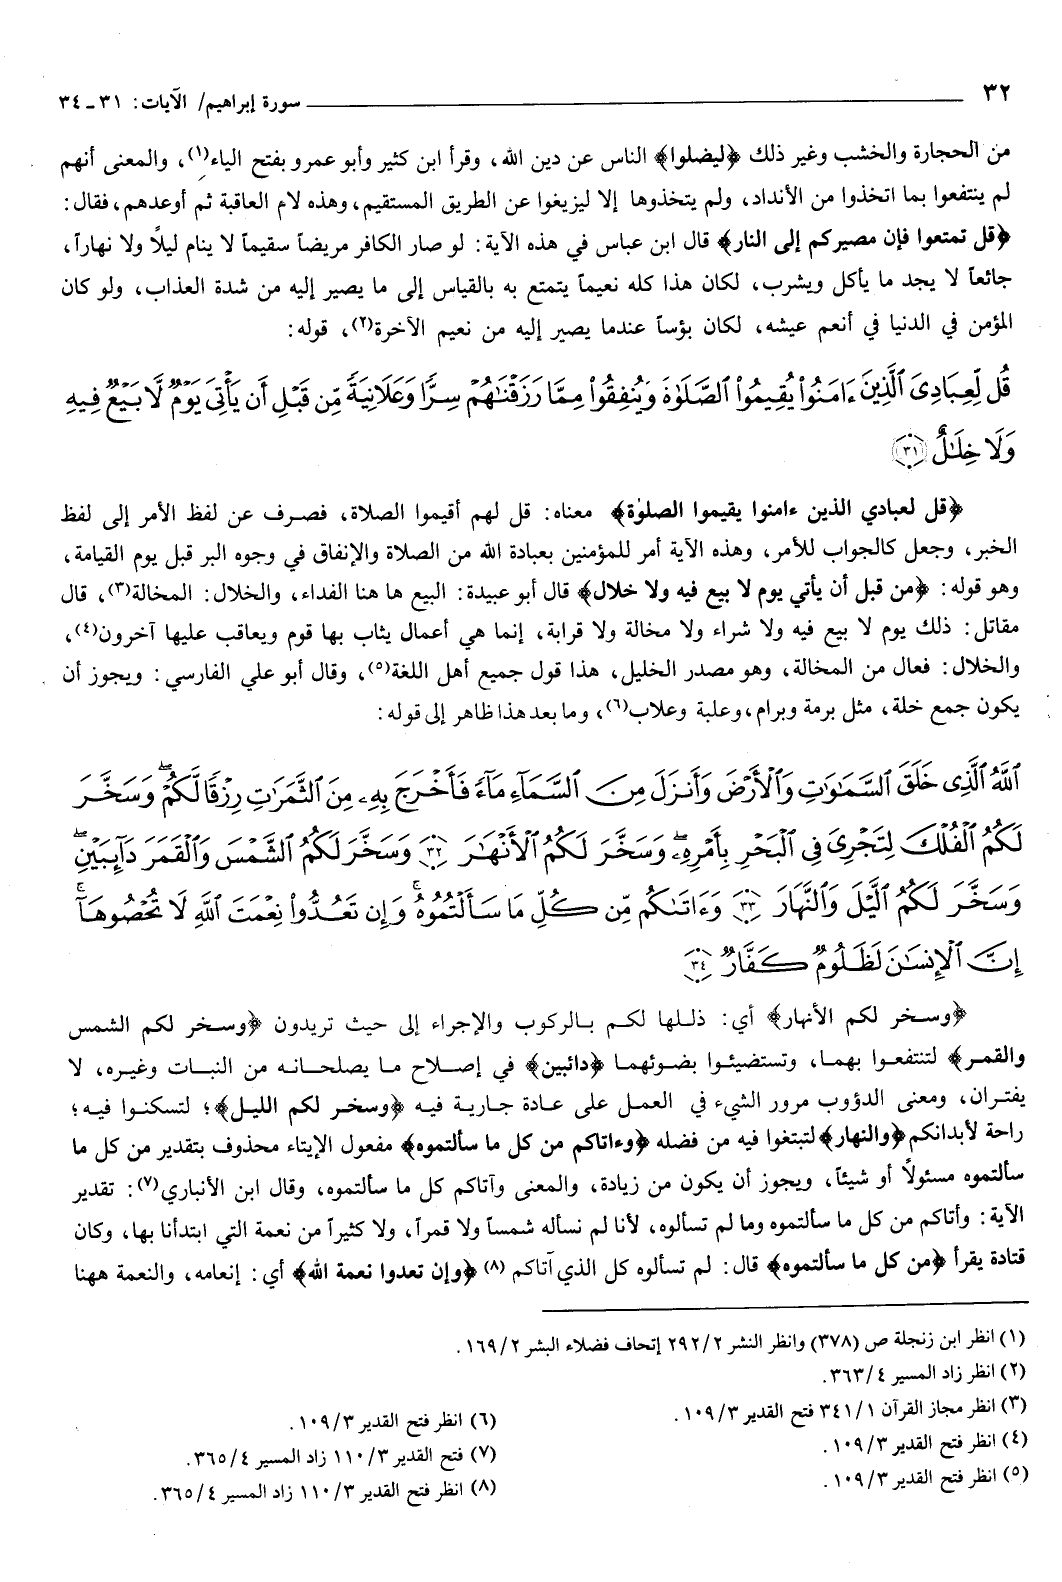 ٣٢ سورة إبراهيم/ الآيات: ٣١ ـ ٣٤
من الحجارة والخشب وغير ذلك ﴿ليضلوا﴾ الناس عن دين الله، وقرأ ابن كثير وأبو عمرو بفتح الياء(١)، والمعنى أنهم
لم ينتفعوا بما اتخذوا من الأنداد، ولم يتخذوها إلا ليزيغوا عن الطريق المستقيم، وهذه لام العاقبة ثم أوعدهم، فقال:
﴿قل تمتعوا فإن مصيركم إلى النار﴾ قال ابن عباس في هذه الآية: لو صار الكافر مريضاً سقيماً لا ينام ليلاً ولا نهاراً،
جائعاً لا يجد ما يأكل ويشرب، لكان هذا كله نعيماً يتمتع به بالقياس إلى ما يصير إليه من شدة العذاب، ولو كان
المؤمن في الدنيا في أنعم عيشه، لكان بؤساً عندما يصير إليه من نعيم الآخرة(٢)، قوله:
قُل لِّعِبَادِيَ ٱلَّذِينَ ءَامَنُواْ يُقِيمُواْ ٱلصَّلَوٰةَ وَيُنفِقُواْ مِمَّا رَزَقْنَٰهُمْ سِرًّا وَعَلَانِيَةً مِّن قَبْلِ أَن يَأْتِىَ يَوْمٌ لَّا بَيْعٌ فِيهِ
وَلَا خِلَٰلٌ ٣١
﴿قل لعبادي الذين ءامنوا يقيموا الصلوٰة﴾ معناه: قل لهم أقيموا الصلاة، فصرف عن لفظ الأمر إلى لفظ
الخبر، وجعل كالجواب للأمر، وهذه الآية أمر للمؤمنين بعبادة الله من الصلاة والإنفاق في وجوه البر قبل يوم القيامة،
وهو قوله: ﴿من قبل أن يأتي يوم لا بيع فيه ولا خلال﴾ قال أبو عبيدة: البيع ها هنا الفداء، والخلال: المخالة(٣)، قال
مقاتل: ذلك يوم لا بيع فيه ولا شراء ولا مخالة ولا قرابة، إنما هي أعمال يثاب بها قوم ويعاقب عليها آخرون(٤)،
والخلال: فعال من المخالة، وهو مصدر الخليل، هذا قول جميع أهل اللغة(٥)، وقال أبو علي الفارسي: ويجوز أن
يكون جمع خلة، مثل برمة وبرام، وعلبة وعلاب(٦)، وما بعد هذا ظاهر إلى قوله:
ٱللَّهُ ٱلَّذِى خَلَقَ ٱلسَّمَٰوَٰتِ وَٱلْأَرْضَ وَأَنزَلَ مِنَ ٱلسَّمَآءِ مَآءً فَأَخْرَجَ بِهِۦ مِنَ ٱلثَّمَرَٰتِ رِزْقًا لَّكُمْ ۖ وَسَخَّرَ
لَكُمُ ٱلْفُلْكَ لِتَجْرِىَ فِى ٱلْبَحْرِ بِأَمْرِهِۦ ۖ وَسَخَّرَ لَكُمُ ٱلْأَنْهَٰرَ ٣٢ وَسَخَّرَ لَكُمُ ٱلشَّمْسَ وَٱلْقَمَرَ دَآئِبَيْنِ ۖ
وَسَخَّرَ لَكُمُ ٱلَّيْلَ وَٱلنَّهَارَ ٣٣ وَءَاتَىٰكُم مِّن كُلِّ مَا سَأَلْتُمُوهُ ۚ وَإِن تَعُدُّواْ نِعْمَتَ ٱللَّهِ لَا تُحْصُوهَآ ۗ
إِنَّ ٱلْإِنسَٰنَ لَظَلُومٌ كَفَّارٌ ٣٤
﴿وسخر لكم الأنهار﴾ أي: ذللها لكم بالركوب والإجراء إلى حيث تريدون ﴿وسخر لكم الشمس
والقمر﴾ لتنتفعوا بهما، وتستضيئوا بضوئهما ﴿دائبين﴾ في إصلاح ما يصلحانه من النبات وغيره، لا
يفتران، ومعنى الدؤوب مرور الشيء في العمل على عادة جارية فيه ﴿وسخر لكم الليل﴾؛ لتسكنوا فيه؛
راحة لأبدانكم ﴿والنهار﴾ لتبتغوا فيه من فضله ﴿وءاتاكم من كل ما سألتموه﴾ مفعول الإيتاء محذوف بتقدير من كل ما
سألتموه مسئولاً أو شيئاً، ويجوز أن يكون من زيادة، والمعنى وآتاكم كل ما سألتموه، وقال ابن الأنباري(٧): تقدير
الآية: وأتاكم من كل ما سألتموه وما لم تسألوه، لأنا لم نسأله شمساً ولا قمراً، ولا كثيراً من نعمة التي ابتدأنا بها، وكان
قتادة يقرأ ﴿من كل ما سألتموه﴾ قال: لم تسألوه كل الذي آتاكم (٨) ﴿وإن تعدوا نعمة الله﴾ أي: إنعامه، والنعمة ههنا
(١) انظر ابن زنجلة ص (٣٧٨) وانظر النشر ٢٩٢/٢ إتحاف فضلاء البشر ١٦٩/٢.
(٢) انظر زاد المسير ٣٦٣/٤.
(٣) انظر مجاز القرآن ٣٤١/١ فتح القدير ١٠٩/٣.
(٤) انظر فتح القدير ١٠٩/٣.
(٥) انظر فتح القدير ١٠٩/٣.
(٦) انظر فتح القدير ١٠٩/٣.
(٧) فتح القدير ١١٠/٣ زاد المسير ٣٦٥/٤.
(٨) انظر فتح القدير ١١٠/٣ زاد المسير ٣٦٥/٤.